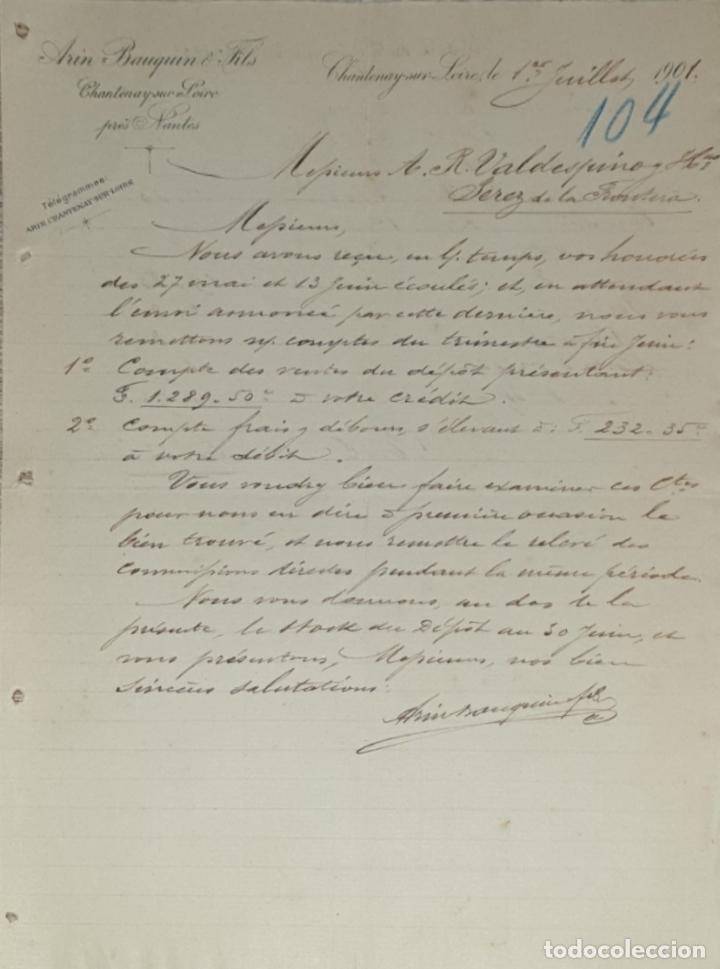 Arin Bauquin & Fils
Chantenay-sur-Loire
près Nantes
Télégrammes:
ARIN, CHANTENAY-SUR-LOIRE
Chantenay-sur-Loire, le 1er Juillet 1901.
104
Messieurs A. R. Valdespino y Hno
Jerez de la Frontera.
Messieurs,
Nous avons reçu, en temps, vos honorées
des 27 mai et 13 Juin écoulés; et, en attendant
l'envoi annoncé par cette dernière, nous vous
remettons n/ comptes du trimestre à fin Juin:
1° Compte des ventes du dépôt présentant:
F. 1.289.50 à votre crédit.
2° Compte frais y débours, s'élevant à: F. 232.35
à votre débit.
Vous voudrez bien faire examiner ces Ctes
pour nous en dire à première occasion le
bien trouvé, et nous remettre le relevé des
commissions directes pendant la même période.
Nous vous donnons, au dos de la
présente, le stock du Dépôt au 30 Juin, et
vous présentons, Messieurs, nos bien
sincères salutations.
Arin Bauquin & fils
todocoleccion.net